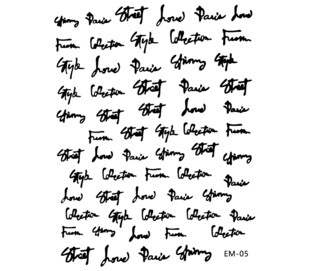 Skinny Paris Street Love Paris Love
From Collection Style Collection From
Style Love Paris Skinny Style
Style Collection Street Paris Street
Skinny Street Street Love Paris
From Street Style Collection From
Street Love Paris Skinny Street Skinny
Style Collection From Collection Paris
Love Street Love Paris Skinny
Collection Style Collection Collection Paris
From Skinny Love From Collection
Street Love Paris Skinny EM-05